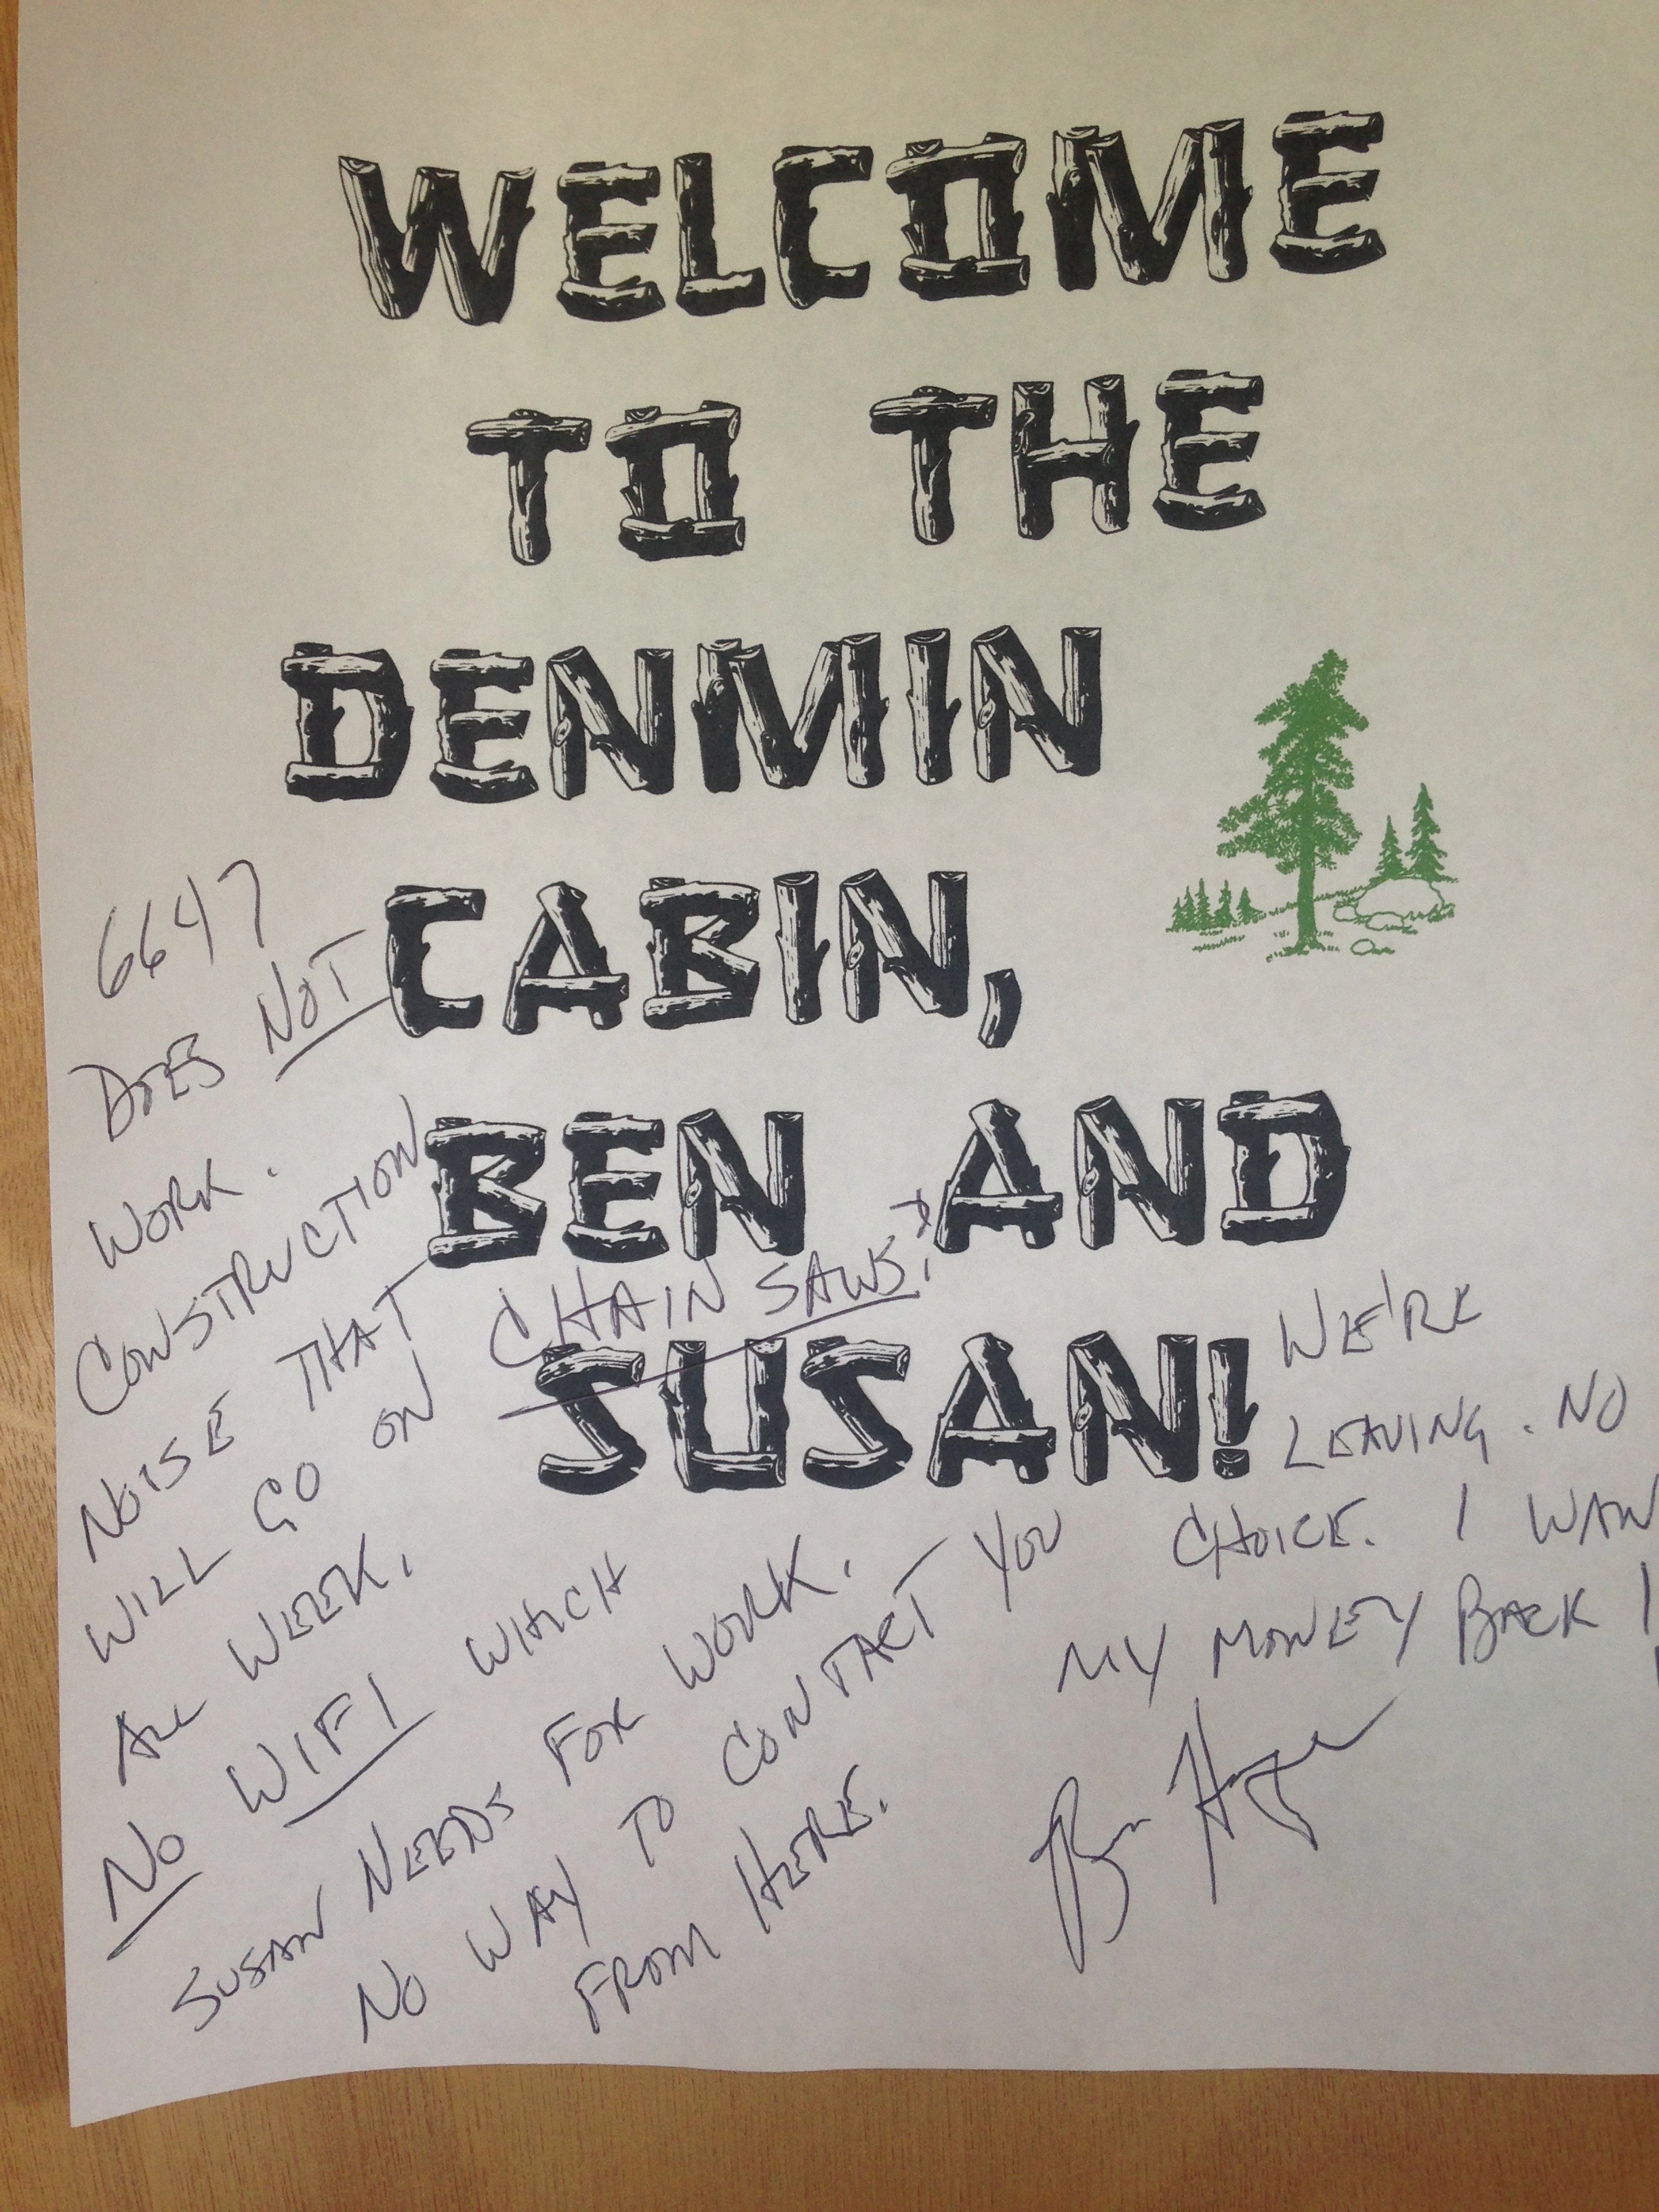 WELCOME
TO THE
DENMIN
CABIN,
BEN AND
SUSAN!
6647
DOES NOT
WORK.
CONSTRUCTION
NOISE THAT
WILL GO ON
ALL WEEK.
CHAIN SAWS!
NO WIFI WHICH
SUSAN NEEDS FOR WORK.
NO WAY TO CONTACT YOU
FROM HERE.
WE'RE
LEAVING. NO
CHOICE. I WAN
MY MONEY BACK!
Ben